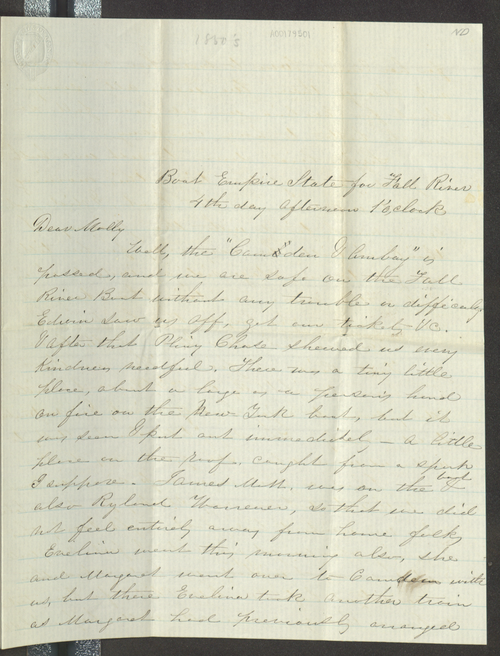 ND
1850's
100119501
Boat Empire State for Fall River
4th day afternoon 1 o'clock
Dear Molly
Well, the "Camden & Amboy" is
passed, and we are safe on the Fall
River Boat without any trouble or difficulty
Edwin saw us off, got our tickets &c.
& after that Pliny Chase shewed us every
kindness needful. There was a tiny little
place, about as large as a person's hand
on fire on the New York boat, but it
was seen & put out immediately – a little
place on the roof, caught from a spark
I suppose. James Mott. was on the boat &
also Ryland Warrener, so that we did
not feel entirely away from home folks
Eveline went this morning also, she
and Margaret went over to Camden with
us, but there Eveline took another train
as Margaret had previously arranged